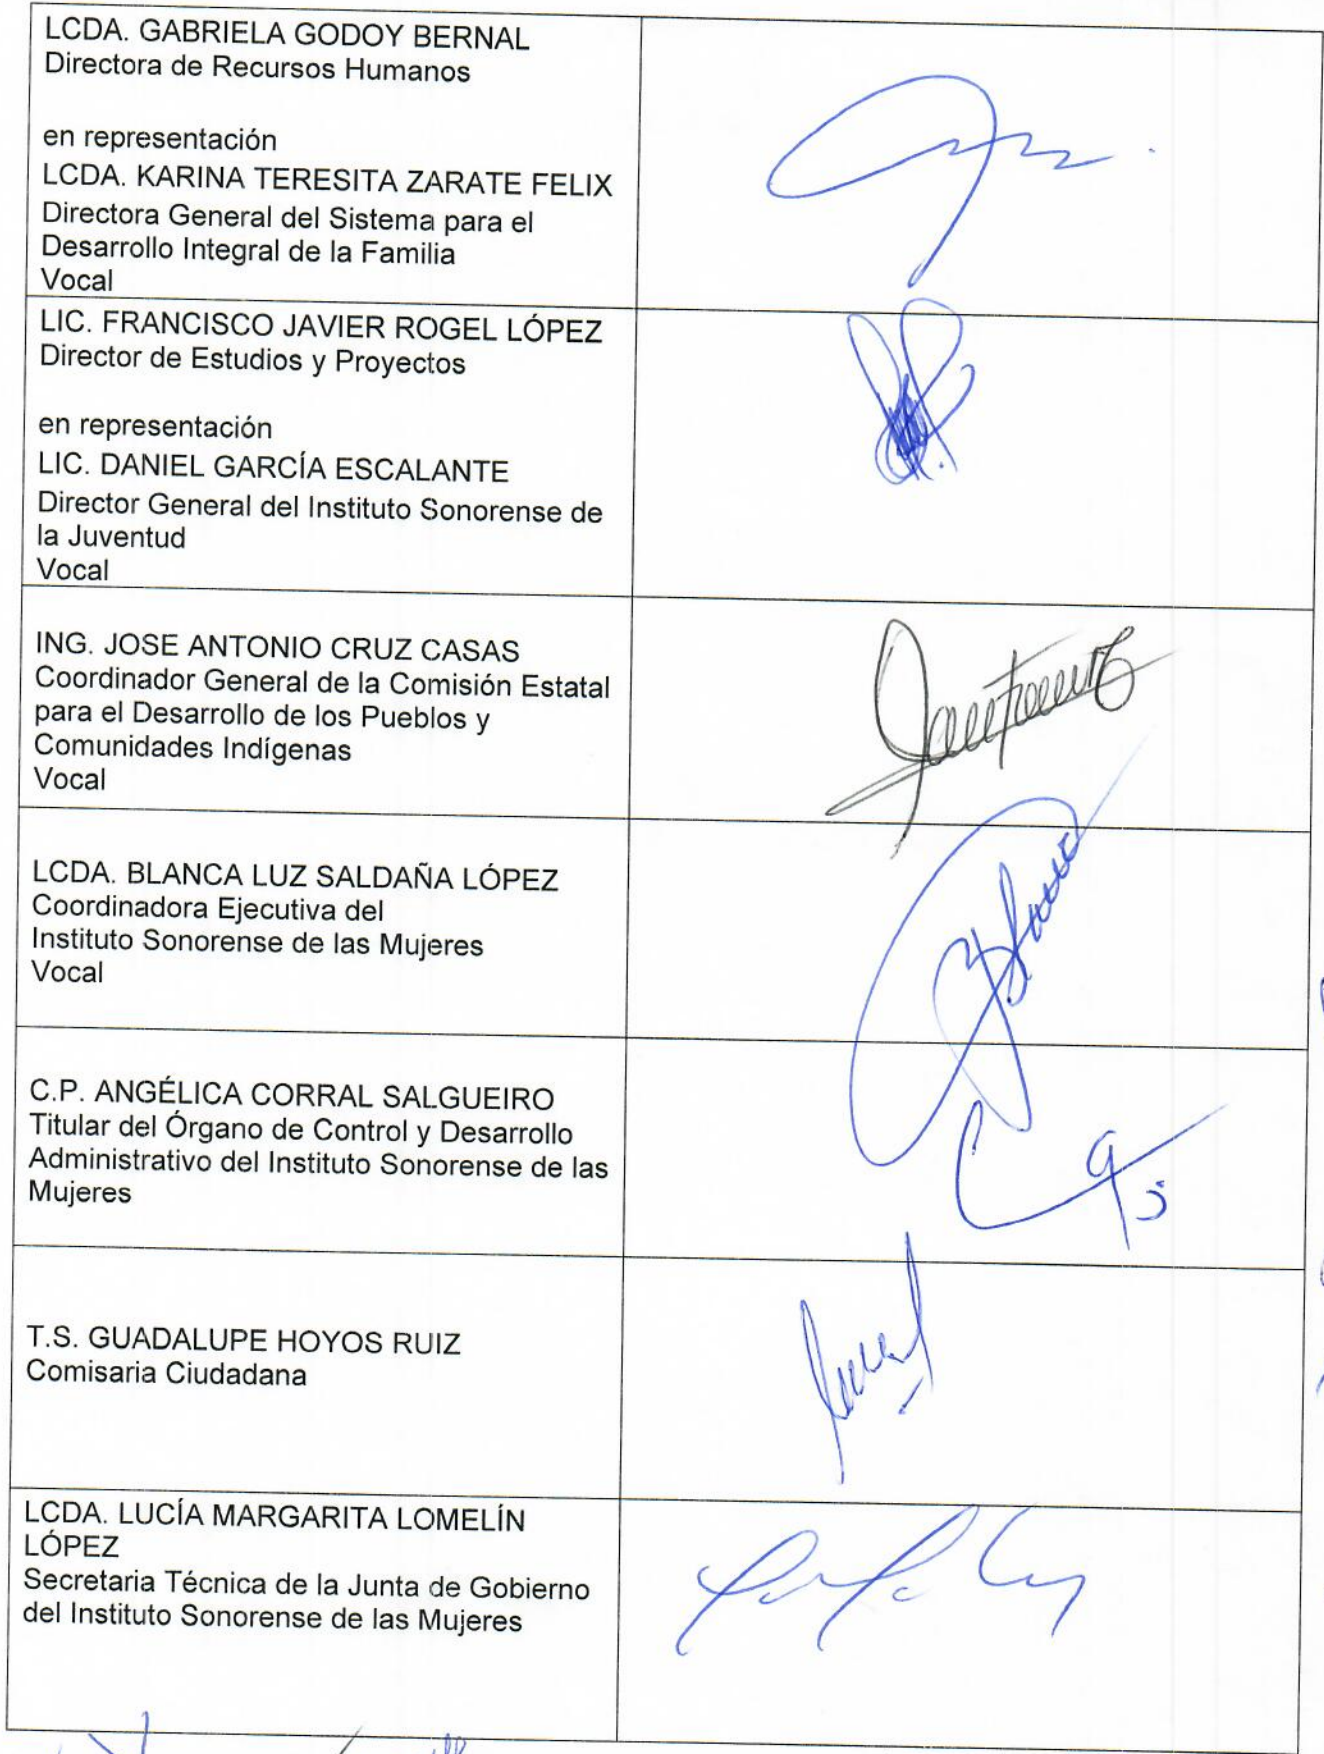 LCDA. GABRIELA GODOY BERNAL
Directora de Recursos Humanos
en representación
LCDA. KARINA TERESITA ZARATE FELIX
Directora General del Sistema para el
Desarrollo Integral de la Familia
Vocal
LIC. FRANCISCO JAVIER ROGEL LÓPEZ
Director de Estudios y Proyectos
en representación
LIC. DANIEL GARCÍA ESCALANTE
Director General del Instituto Sonorense de
la Juventud
Vocal
ING. JOSE ANTONIO CRUZ CASAS
Coordinador General de la Comisión Estatal
para el Desarrollo de los Pueblos y
Comunidades Indígenas
Vocal
LCDA. BLANCA LUZ SALDAÑA LÓPEZ
Coordinadora Ejecutiva del
Instituto Sonorense de las Mujeres
Vocal
C.P. ANGÉLICA CORRAL SALGUEIRO
Titular del Órgano de Control y Desarrollo
Administrativo del Instituto Sonorense de las
Mujeres
T.S. GUADALUPE HOYOS RUIZ
Comisaria Ciudadana
LCDA. LUCÍA MARGARITA LOMELÍN
LÓPEZ
Secretaria Técnica de la Junta de Gobierno
del Instituto Sonorense de las Mujeres